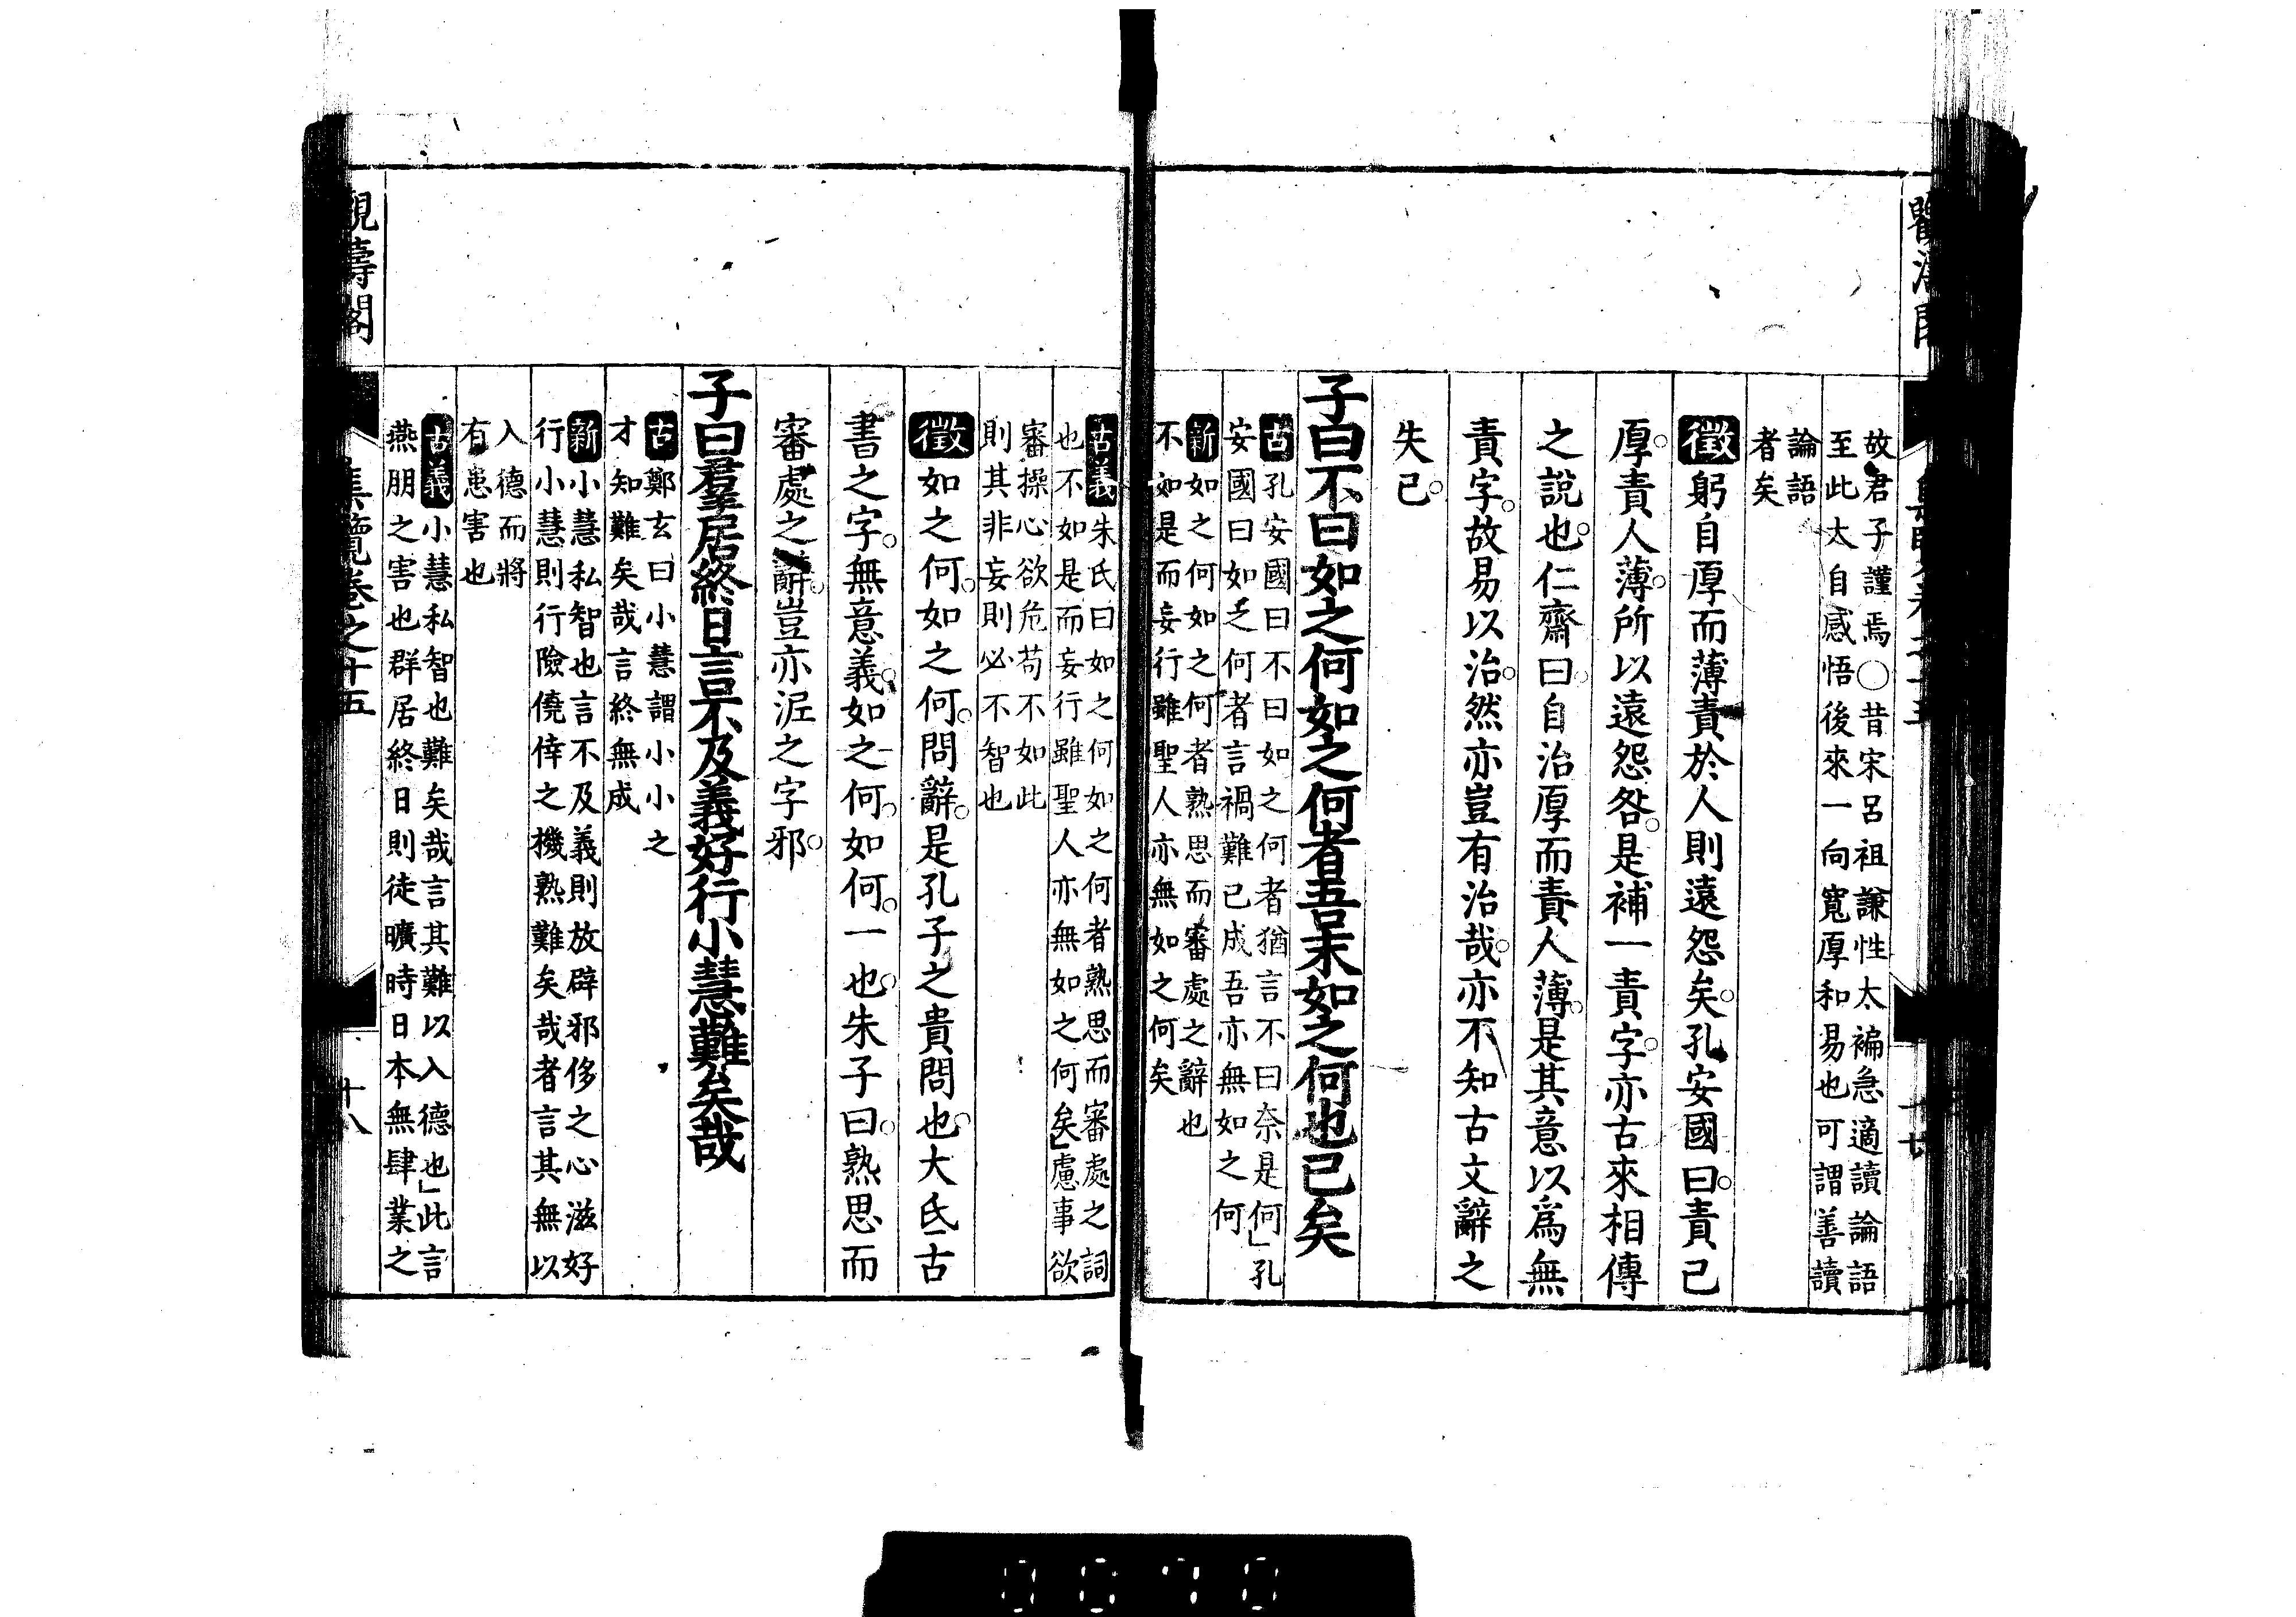 故君子謹焉○昔宋呂祖謙性太褊急適讀論語
至此太自感悟後來一向寬厚和易也可謂善讀
論語
者矣
徵躬自厚而薄責於人則遠怨矣。孔安國曰。責己
厚。責人薄。所以遠怨咎。是補一責字。亦古來相傳
之說也。仁齋曰。自治厚而責人薄。是其意以爲無
責字。故易以治。然亦豈有治哉。亦不知古文辭之
失已。
子曰不曰如之何如之何者吾末如之何也已矣
古孔安國曰不曰如之何者猶言不曰奈是何」孔
安國曰如之何者言禍難已成吾亦無如之何
新如之何如之何者熟思而審處之辭也
不如是而妄行雖聖人亦無如之何矣
古義朱氏曰如之何如之何者熟思而審處之詞
也不如是而妄行雖聖人亦無如之何矣」慮事欲
審操心欲危苟不如此
則其非妄則必不智也
徵如之何。如之何。問辭。是孔子之貴問也。大氐古
書之字。無意義。如之何。如何。一也。朱子曰。熟思而
審處之辭。豈亦泥之字邪。
子曰羣居終日言不及義好行小慧難矣哉
古鄭玄曰小慧謂小小之
才知難矣哉言終無成
新小慧私智也言不及義則放辟邪侈之心滋好
行小慧則行險僥倖之機熟難矣哉者言其無以
入德而將
有患害也
古義小慧私智也難矣哉言其難以入德也」此言
燕朋之害也群居終日則徒曠時日本無肆業之
觀濤閣
集覽卷之十五
十八